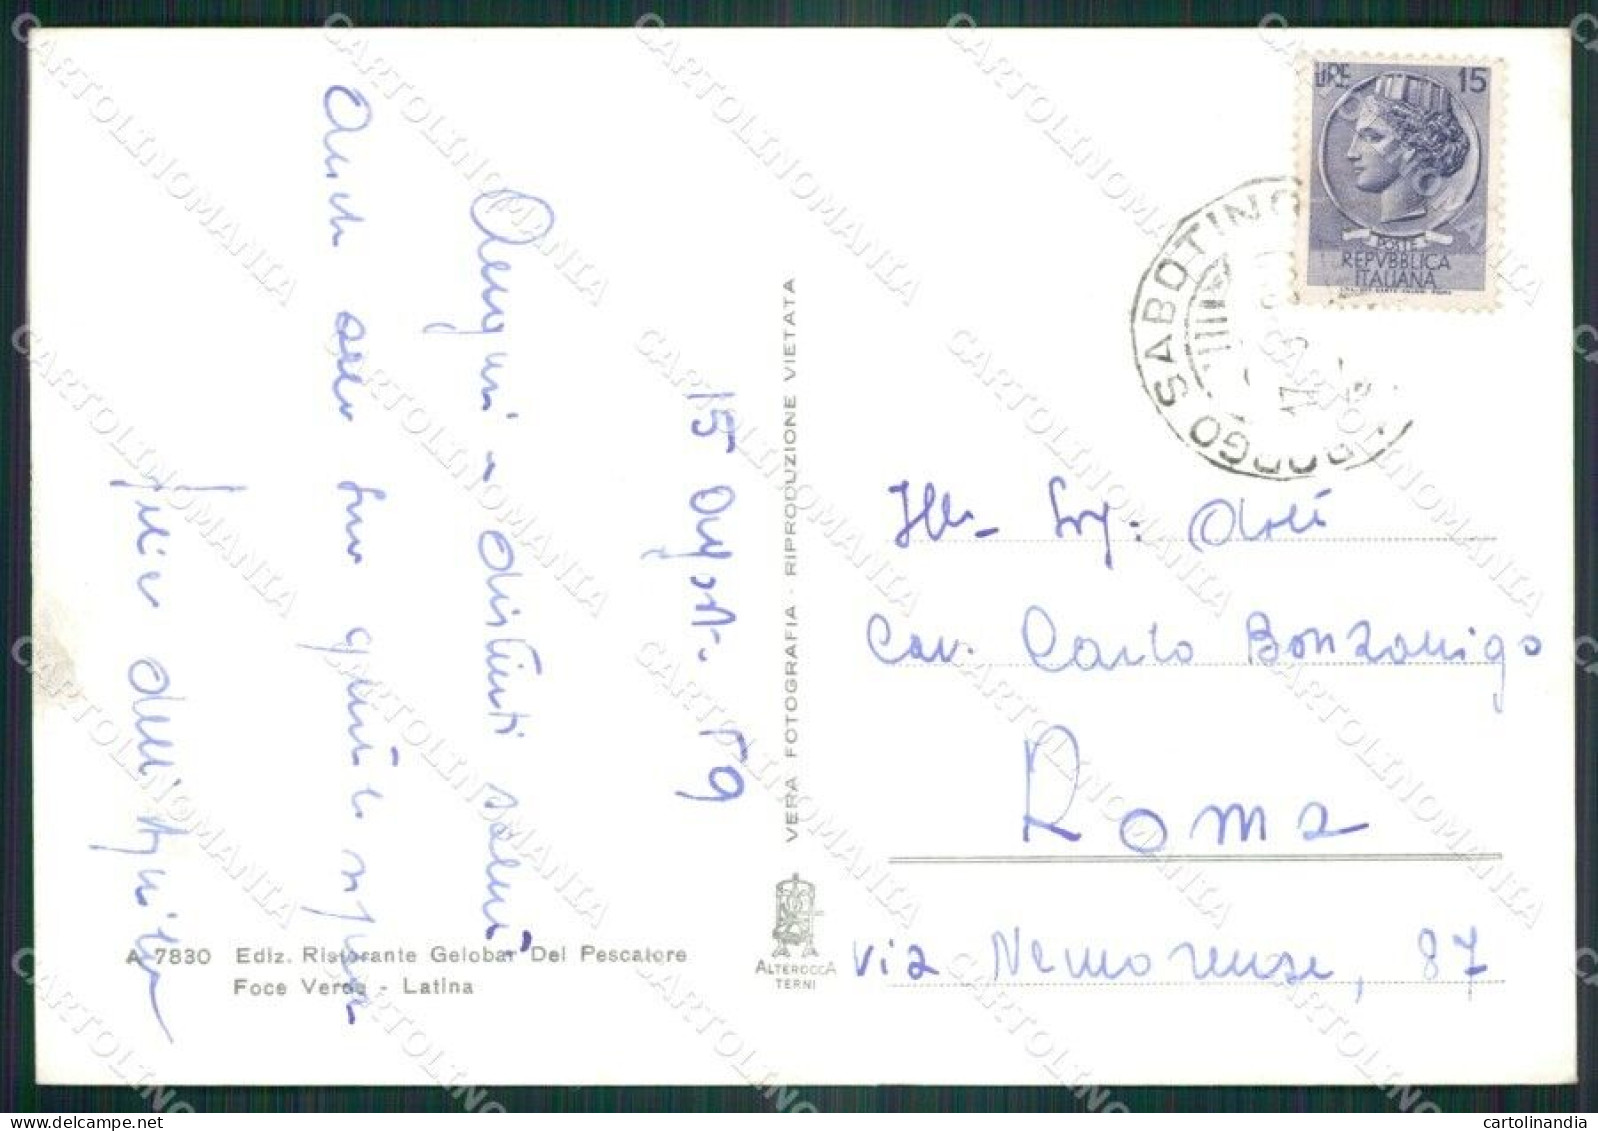 15 Agost. 59
Auguri - distinti saluti
Anch
A 7830 Ediz. Ristorante Gelobar Del Pescatore
Foce Verde - Latina
VERA FOTOGRAFIA - RIPRODUZIONE VIETATA
ALTEROCCA
TERNI
LIRE 15
POSTE
REPVBBLICA
ITALIANA
BORGO SABOTINO
17
Ill. Sig. Dott
Cav. Carlo Bonzanigo
Roma
via Nemorense, 87
CARTOLINOMANIA
cartolinandia